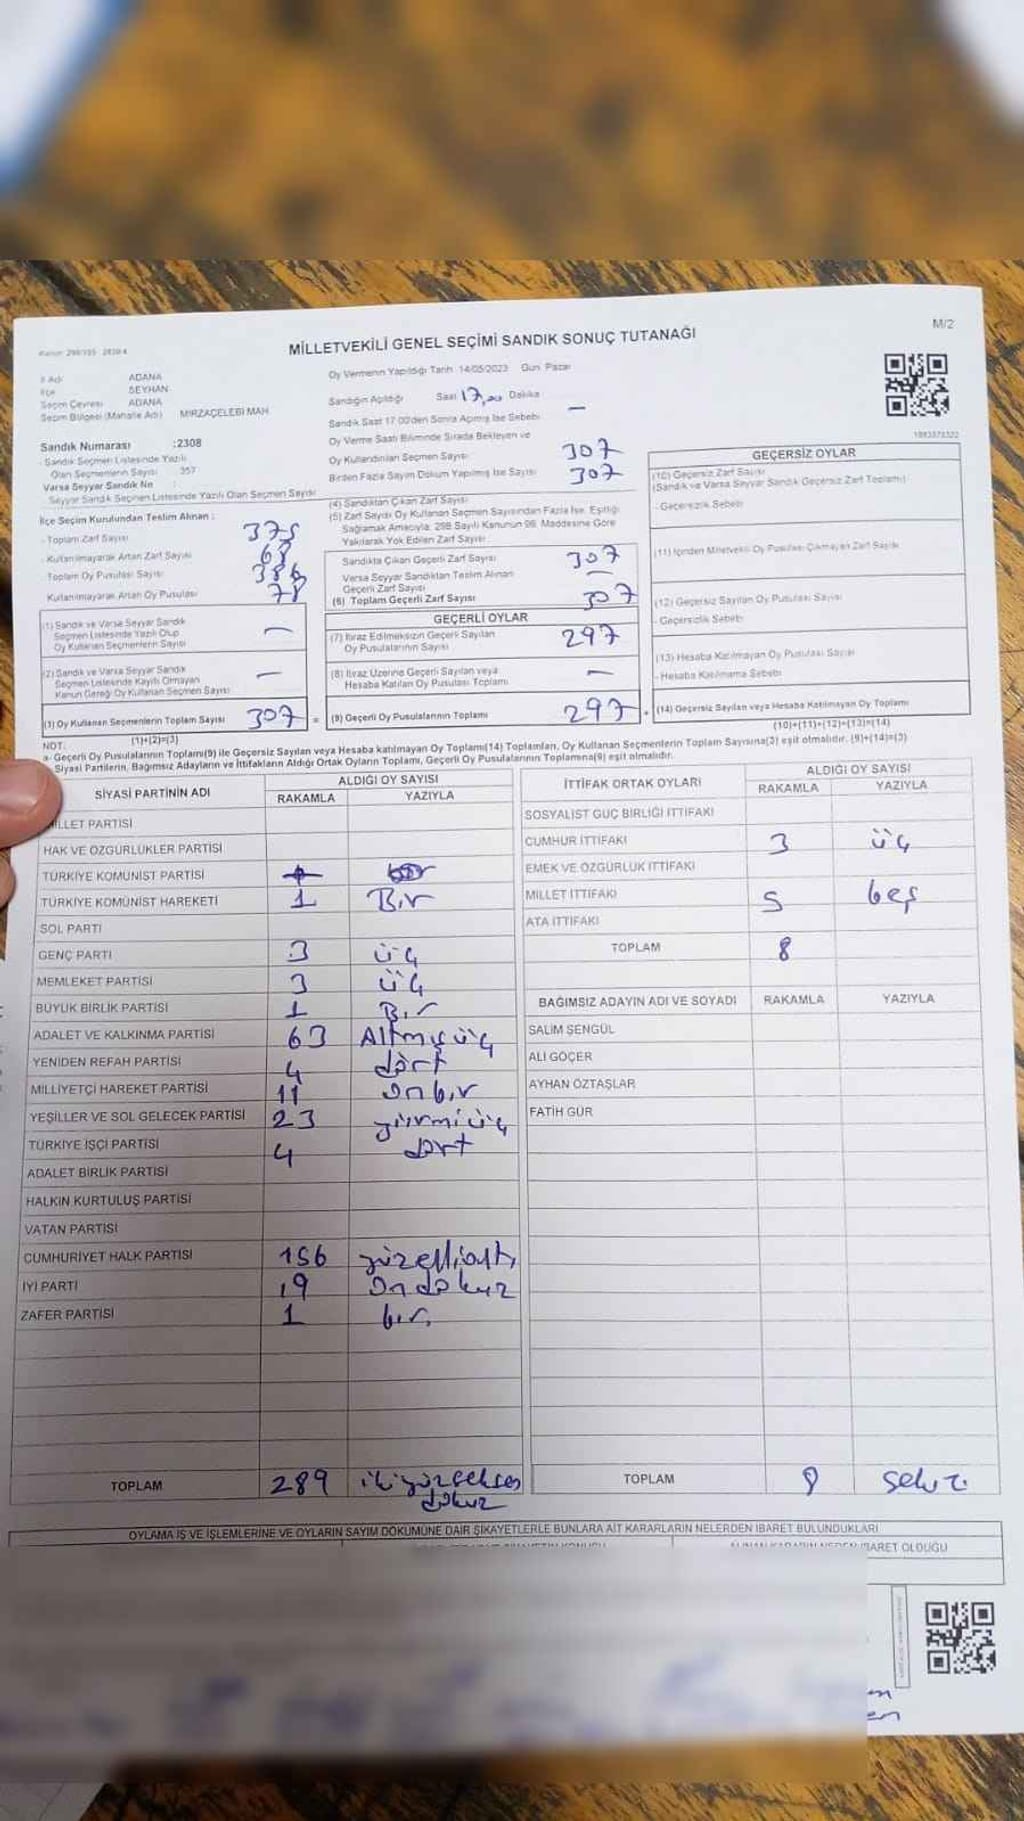 M/2
MİLLETVEKİLİ GENEL SEÇİMİ SANDIK SONUÇ TUTANAĞI
İl Adı ADANA
İlçe SEYHAN
Seçim Çevresi ADANA
Seçim Bölgesi (Mahalle Adı) MİRZAÇELEBİ MAH.
Sandık Numarası :2308
- Sandık Seçmen Listesinde Yazılı
Olan Seçmenlerin Sayısı 357
Varsa Seyyar Sandık No :
Seyyar Sandık Seçmen Listesinde Yazılı Olan Seçmen Sayısı
Oy Vermenin Yapıldığı Tarih 14/05/2023 Gün Pazar
Sandığın Açıldığı Saat 17,00 Dakika
Sandık Saat 17:00'den Sonra Açmış İse Sebebi —
Oy Verme Saati Bitiminde Sırada Bekleyen ve
Oy Kullandırılan Seçmen Sayısı 307
Birden Fazla Sayım Döküm Yapılmış İse Sayısı 307
İlçe Seçim Kurulundan Teslim Alınan :
- Toplam Zarf Sayısı 375
- Kullanılmayarak Artan Zarf Sayısı 68
Toplam Oy Pusulası Sayısı 386
Kullanılmayarak Artan Oy Pusulası 78
(1) Sandık ve Varsa Seyyar Sandık
Seçmen Listesinde Yazılı Olup
Oy Kullanan Seçmenlerin Sayısı —
(2) Sandık ve Varsa Seyyar Sandık
Seçmen Listesinde Kayıtlı Olmayan
Kanun Gereği Oy Kullanan Seçmen Sayısı —
(3) Oy Kullanan Seçmenlerin Toplam Sayısı 307 =
(1)+(2)=(3)
(4) Sandıktan Çıkan Zarf Sayısı
(5) Zarf Sayısı Oy Kullanan Seçmen Sayısından Fazla İse, Eşitliği
Sağlamak Amacıyla; 298 Sayılı Kanunun 98. Maddesine Göre
Yakılarak Yok Edilen Zarf Sayısı
Sandıkta Çıkan Geçerli Zarf Sayısı 307
Varsa Seyyar Sandıktan Teslim Alınan
Geçerli Zarf Sayısı —
(6) Toplam Geçerli Zarf Sayısı 307
GEÇERLİ OYLAR
(7) İtiraz Edilmeksizin Geçerli Sayılan
Oy Pusulalarının Sayısı 297
(8) İtiraz Üzerine Geçerli Sayılan veya
Hesaba Katılan Oy Pusulası Toplamı —
(9) Geçerli Oy Pusulalarının Toplamı 297 +
GEÇERSİZ OYLAR
(10) Geçersiz Zarf Sayısı
(Sandık ve Varsa Seyyar Sandık Geçersiz Zarf Toplamı)
- Geçersizlik Sebebi
(11) İçinden Milletvekili Oy Pusulası Çıkmayan Zarf Sayısı
(12) Geçersiz Sayılan Oy Pusulası Sayısı
- Geçersizlik Sebebi
(13) Hesaba Katılmayan Oy Pusulası Sayısı
- Hesaba Katılmama Sebebi
(14) Geçersiz Sayılan veya Hesaba Katılmayan Oy Toplamı
(10)+(11)+(12)+(13)=(14)
NOT:
a- Geçerli Oy Pusulalarının Toplamı(9) ile Geçersiz Sayılan veya Hesaba katılmayan Oy Toplamı(14) Toplamları, Oy Kullanan Seçmenlerin Toplam Sayısına(3) eşit olmalıdır. (9)+(14)=(3)
Siyasi Partilerin, Bağımsız Adayların ve İttifakların Aldığı Ortak Oyların Toplamı, Geçerli Oy Pusulalarının Toplamına(9) eşit olmalıdır.
SİYASİ PARTİNİN ADI ALDIĞI OY SAYISI
RAKAMLA YAZIYLA
MİLLET PARTİSİ
HAK VE ÖZGÜRLÜKLER PARTİSİ
TÜRKİYE KOMÜNİST PARTİSİ
TÜRKİYE KOMÜNİST HAREKETİ 1 Bir
SOL PARTİ
GENÇ PARTİ 3 üç
MEMLEKET PARTİSİ 3 üç
BÜYÜK BİRLİK PARTİSİ 1 Bir
ADALET VE KALKINMA PARTİSİ 63 Altmışüç
YENİDEN REFAH PARTİSİ 4 dört
MİLLİYETÇİ HAREKET PARTİSİ 11 onbir
YEŞİLLER VE SOL GELECEK PARTİSİ 23 yirmiüç
TÜRKİYE İŞÇİ PARTİSİ 4 dört
ADALET BİRLİK PARTİSİ
HALKIN KURTULUŞ PARTİSİ
VATAN PARTİSİ
CUMHURİYET HALK PARTİSİ 156 yüzellialtı
İYİ PARTİ 19 ondokuz
ZAFER PARTİSİ 1 bir
TOPLAM 289 ikiyüzseksen
dokuz
İTTİFAK ORTAK OYLARI ALDIĞI OY SAYISI
RAKAMLA YAZIYLA
SOSYALİST GÜÇ BİRLİĞİ İTTİFAKI
CUMHUR İTTİFAKI 3 üç
EMEK VE ÖZGÜRLÜK İTTİFAKI
MİLLET İTTİFAKI 5 beş
ATA İTTİFAKI
TOPLAM 8
BAĞIMSIZ ADAYIN ADI VE SOYADI RAKAMLA YAZIYLA
SALİM ŞENGÜL
ALİ GÖÇER
AYHAN ÖZTAŞLAR
FATİH GÜR
TOPLAM 8 sekiz
OYLAMA İŞ VE İŞLEMLERİNE VE OYLARIN SAYIM DÖKÜMÜNE DAİR ŞİKAYETLERLE BUNLARA AİT KARARLARIN NELERDEN İBARET BULUNDUKLARI
İBARET OLDUĞU